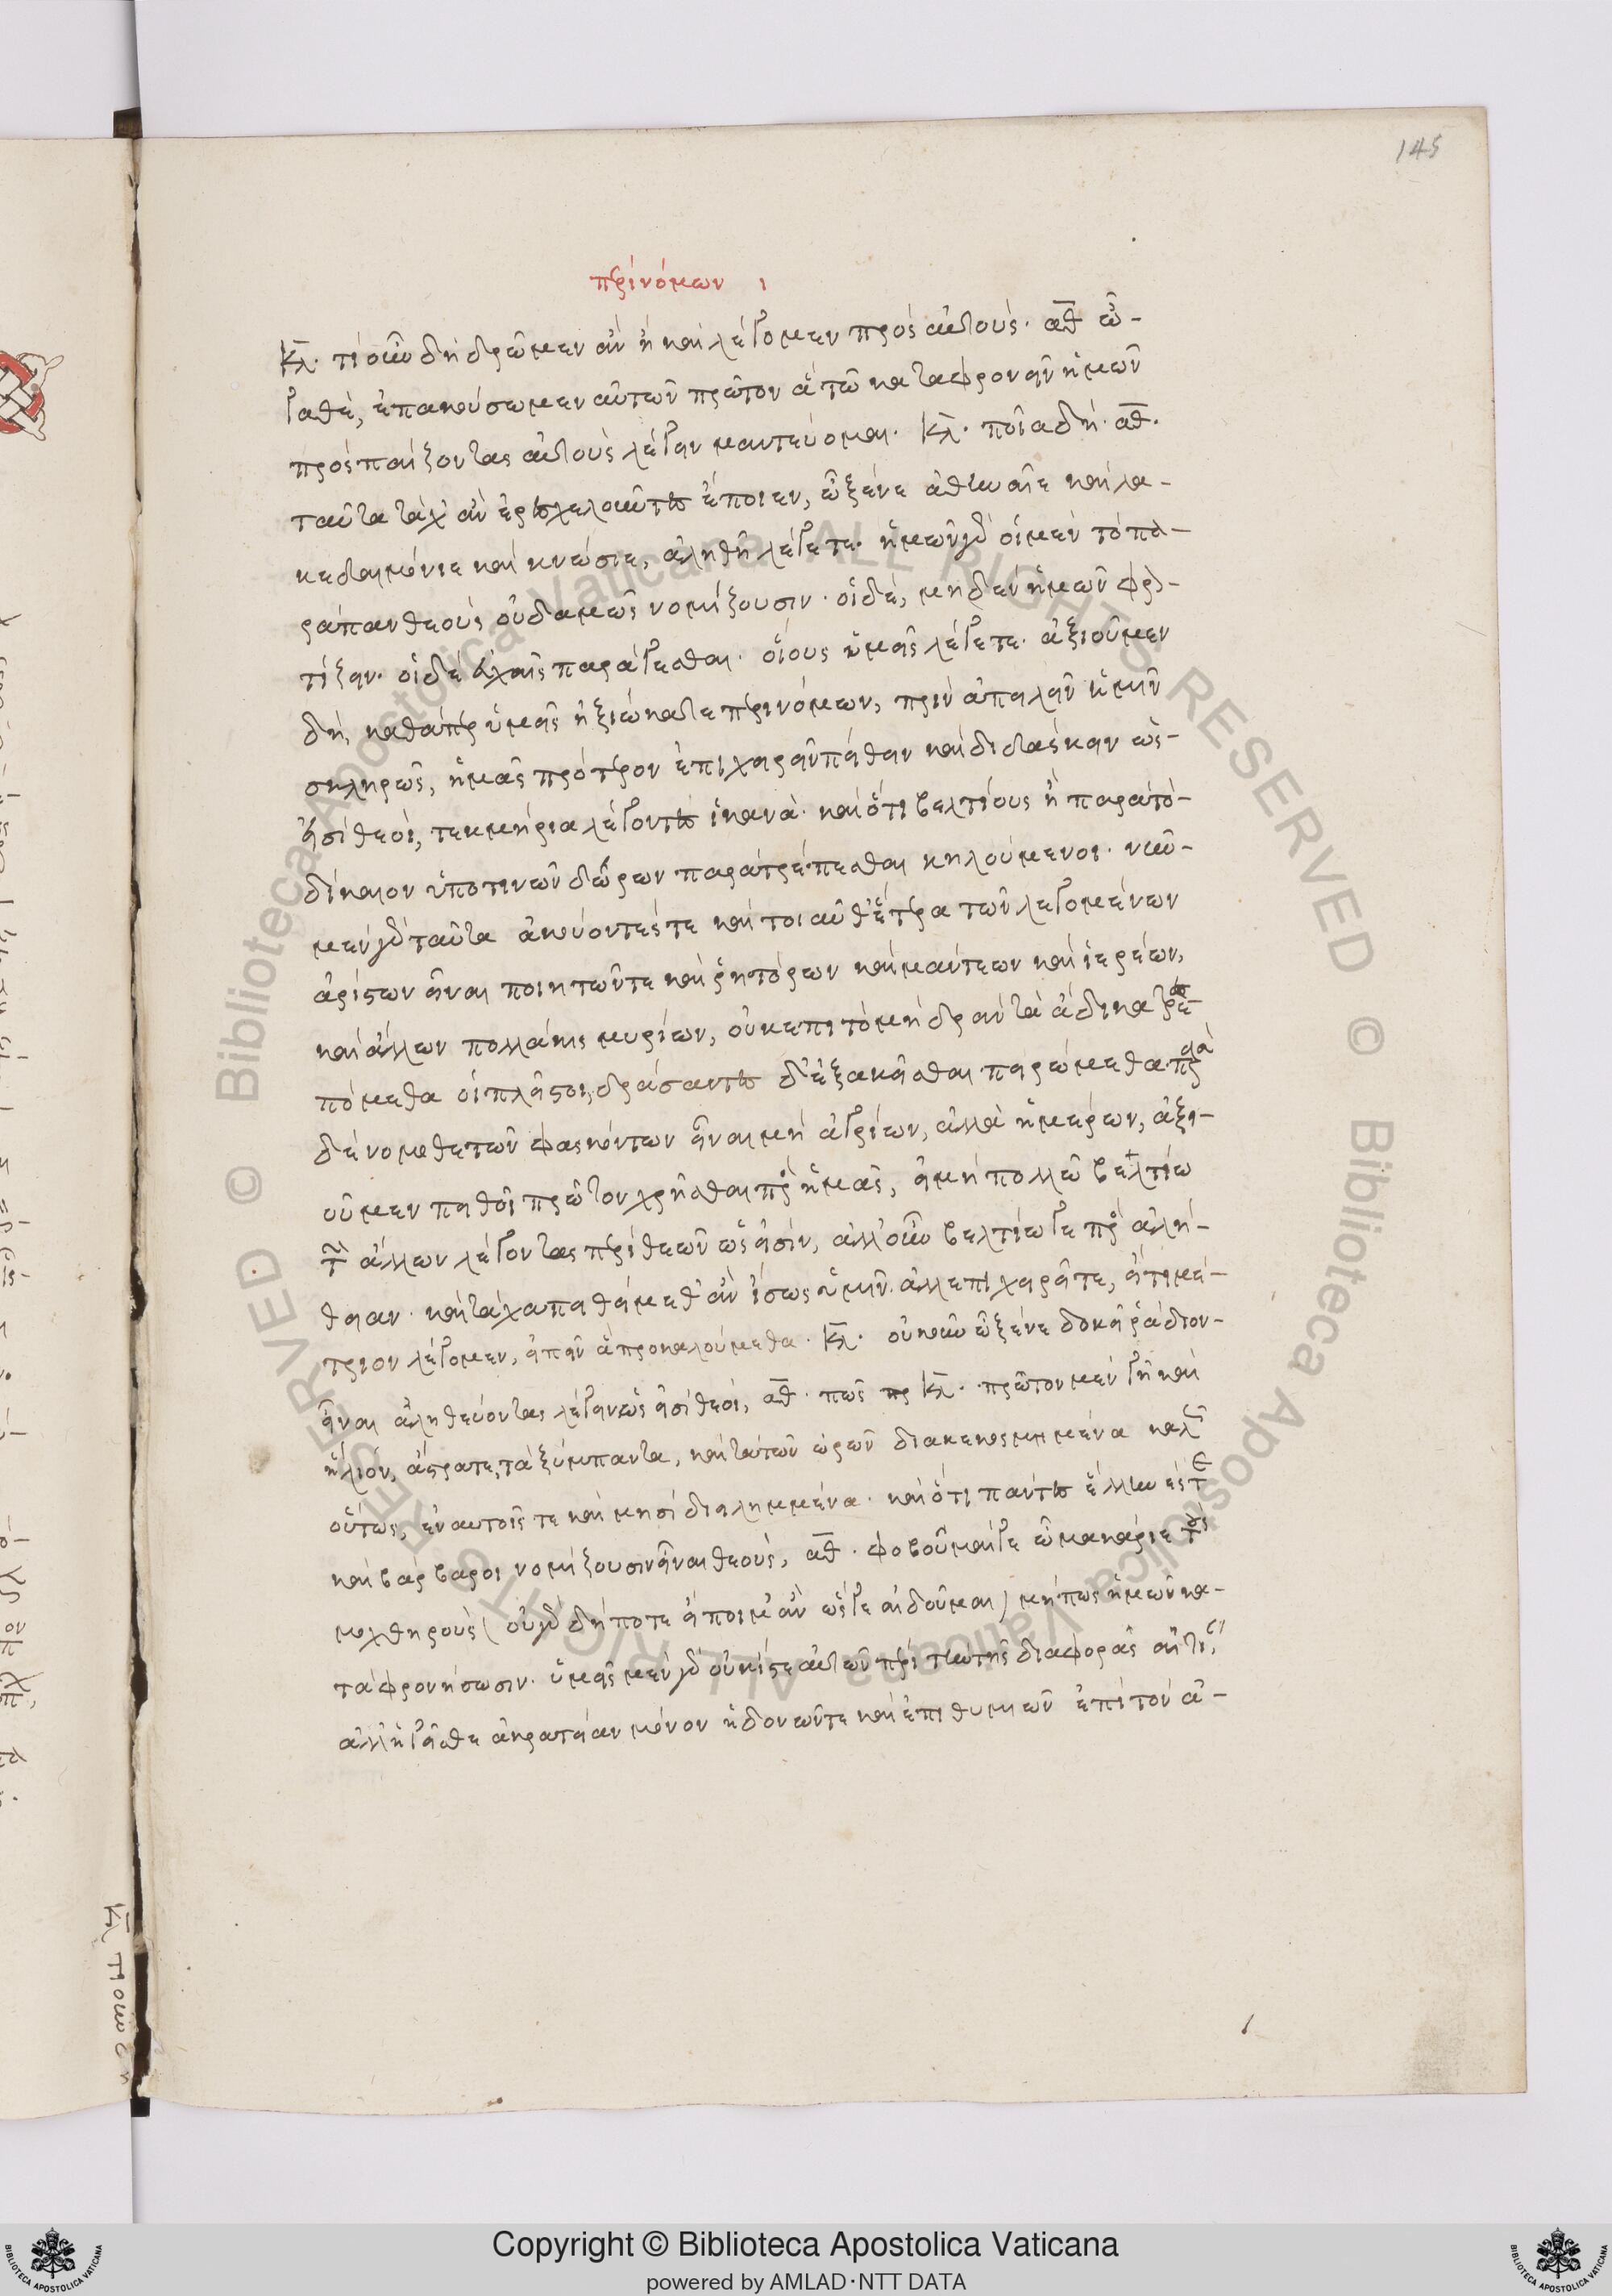 145
περὶ νόμων ι
κλ. τί οὖν δὴ δρῶμεν ἂν ἢ καὶ λέγομεν πρὸς αὐτούς. αθ ὦ-
γαθὲ, ἐπακούσωμεν αὐτῶν πρῶτον ἃ τῷ καταφρονεῖν ἡμῶν
προσπαίζοντας αὐτοὺς λέγειν μαντεύομαι. κλ. ποῖα δή. αθ.
ταῦτα τάχ' ἂν ἐρεσχελοῦντες εἴποιεν, ὦ ξένε ἀθηναῖε καὶ λα-
κεδαιμόνιε καὶ κνώσιε, ἀληθῆ λέγετε. ἡμῶν γὰρ οἱ μὲν τὸ πα-
ράπαν θεοὺς οὐδαμῶς νομίζουσιν. οἱ δὲ, μηδὲν ἡμῶν φρον-
τίζειν. οἱ δὲ εὐχαῖς παράγεσθαι. οἵους ὑμεῖς λέγετε. ἀξιοῦμεν
δὴ, καθάπερ ὑμεῖς ἠξιώκατε περὶ νόμων, πρὶν ἀπειλεῖν ἡμῖν
σκληρῶς, ἡμᾶς πρότερον ἐπιχειρεῖν πείθειν καὶ διδάσκειν ὡς-
εἰσὶ θεοὶ, τεκμήρια λέγοντες ἱκανά. καὶ ὅτι βελτίους ἢ παρὰ τὸ-
δίκαιον ὑπό τινων δώρων παρατρέπεσθαι κηλούμενοι. νῦν-
μὲν γὰρ ταῦτα ἀκούοντές τε καὶ τοιαῦθ' ἕτερα τῶν λεγομένων
ἀρίστων εἶναι ποιητῶν τε καὶ ῥητόρων καὶ μάντεων καὶ ἱερέων,
καὶ ἄλλων πολλάκις μυρίων, οὐκ ἐπὶ τὸ μὴ δρᾶν τὰ ἄδικα τρε-
πόμεθα οἱ πλεῖστοι, δράσαντες δ' ἐξακεῖσθαι πειρώμεθα. παρὰ
δὲ νομοθετῶν φασκόντων εἶναι μὴ ἀγρίων, ἀλλὰ ἡμέρων, ἀξι-
οῦμεν πειθοῖ πρῶτον χρῆσθαι πρὸς ἡμᾶς, εἰ μὴ πολλῷ βελτίω
τῶν ἄλλων λέγοντας περὶ θεῶν ὡς εἰσὶν, ἀλλ' οὖν βελτίω γε πρὸς ἀλή-
θειαν. καὶ τάχα πειθοίμεθ' ἂν ἴσως ὑμῖν. ἀλλ' ἐπιχειρεῖτε, εἴ τι μέ-
τριον λέγομεν, εἰπεῖν ἃ προκαλούμεθα. κλ. οὐκοῦν ὦ ξένε δοκεῖ ῥάδιον-
εἶναι ἀληθεύοντας λέγειν ὡς εἰσὶ θεοί, αθ. πῶς κλ. πρῶτον μὲν γῆ καὶ
ἥλιον, ἄστρα τε, τὰ ξύμπαντα, καὶ τὰ τῶν ὡρῶν διακεκοσμημένα καλῶς
οὕτως, ἐνιαυτοῖς τε καὶ μησὶ διειλημμένα. καὶ ὅτι πάντες ἕλληνές τε
καὶ βάρβαροι νομίζουσιν εἶναι θεούς, αθ. φοβοῦμαί γε ὦ μακάριε τοὺς
μοχθηροὺς (οὐ γὰρ δή ποτε εἴποιμ' ἂν ὥς γε αἰδοῦμαι) μήπως ἡμῶν κα-
ταφρονήσωσιν. ὑμεῖς μὲν γὰρ οὐκ ἴστε αὐτῶν περὶ τὴν τῆς διαφορᾶς αἰτί,
ἀλλ' ἡγεῖσθε ἀκρατείᾳ μόνον ἡδονῶν τε καὶ ἐπιθυμιῶν ἐπὶ τὸν ἀ-
κλ τι οὖν δὴ
© Biblioteca Apostolica Vaticana ALL RIGHTS RESERVED © Biblioteca Apostolica Vaticana ALL RIGHTS RESERVED
Copyright © Biblioteca Apostolica Vaticana
powered by AMLAD·NTT DATA
BIBLIOTECA APOSTOLICA VATICANA
BIBLIOTECA APOSTOLICA VATICANA